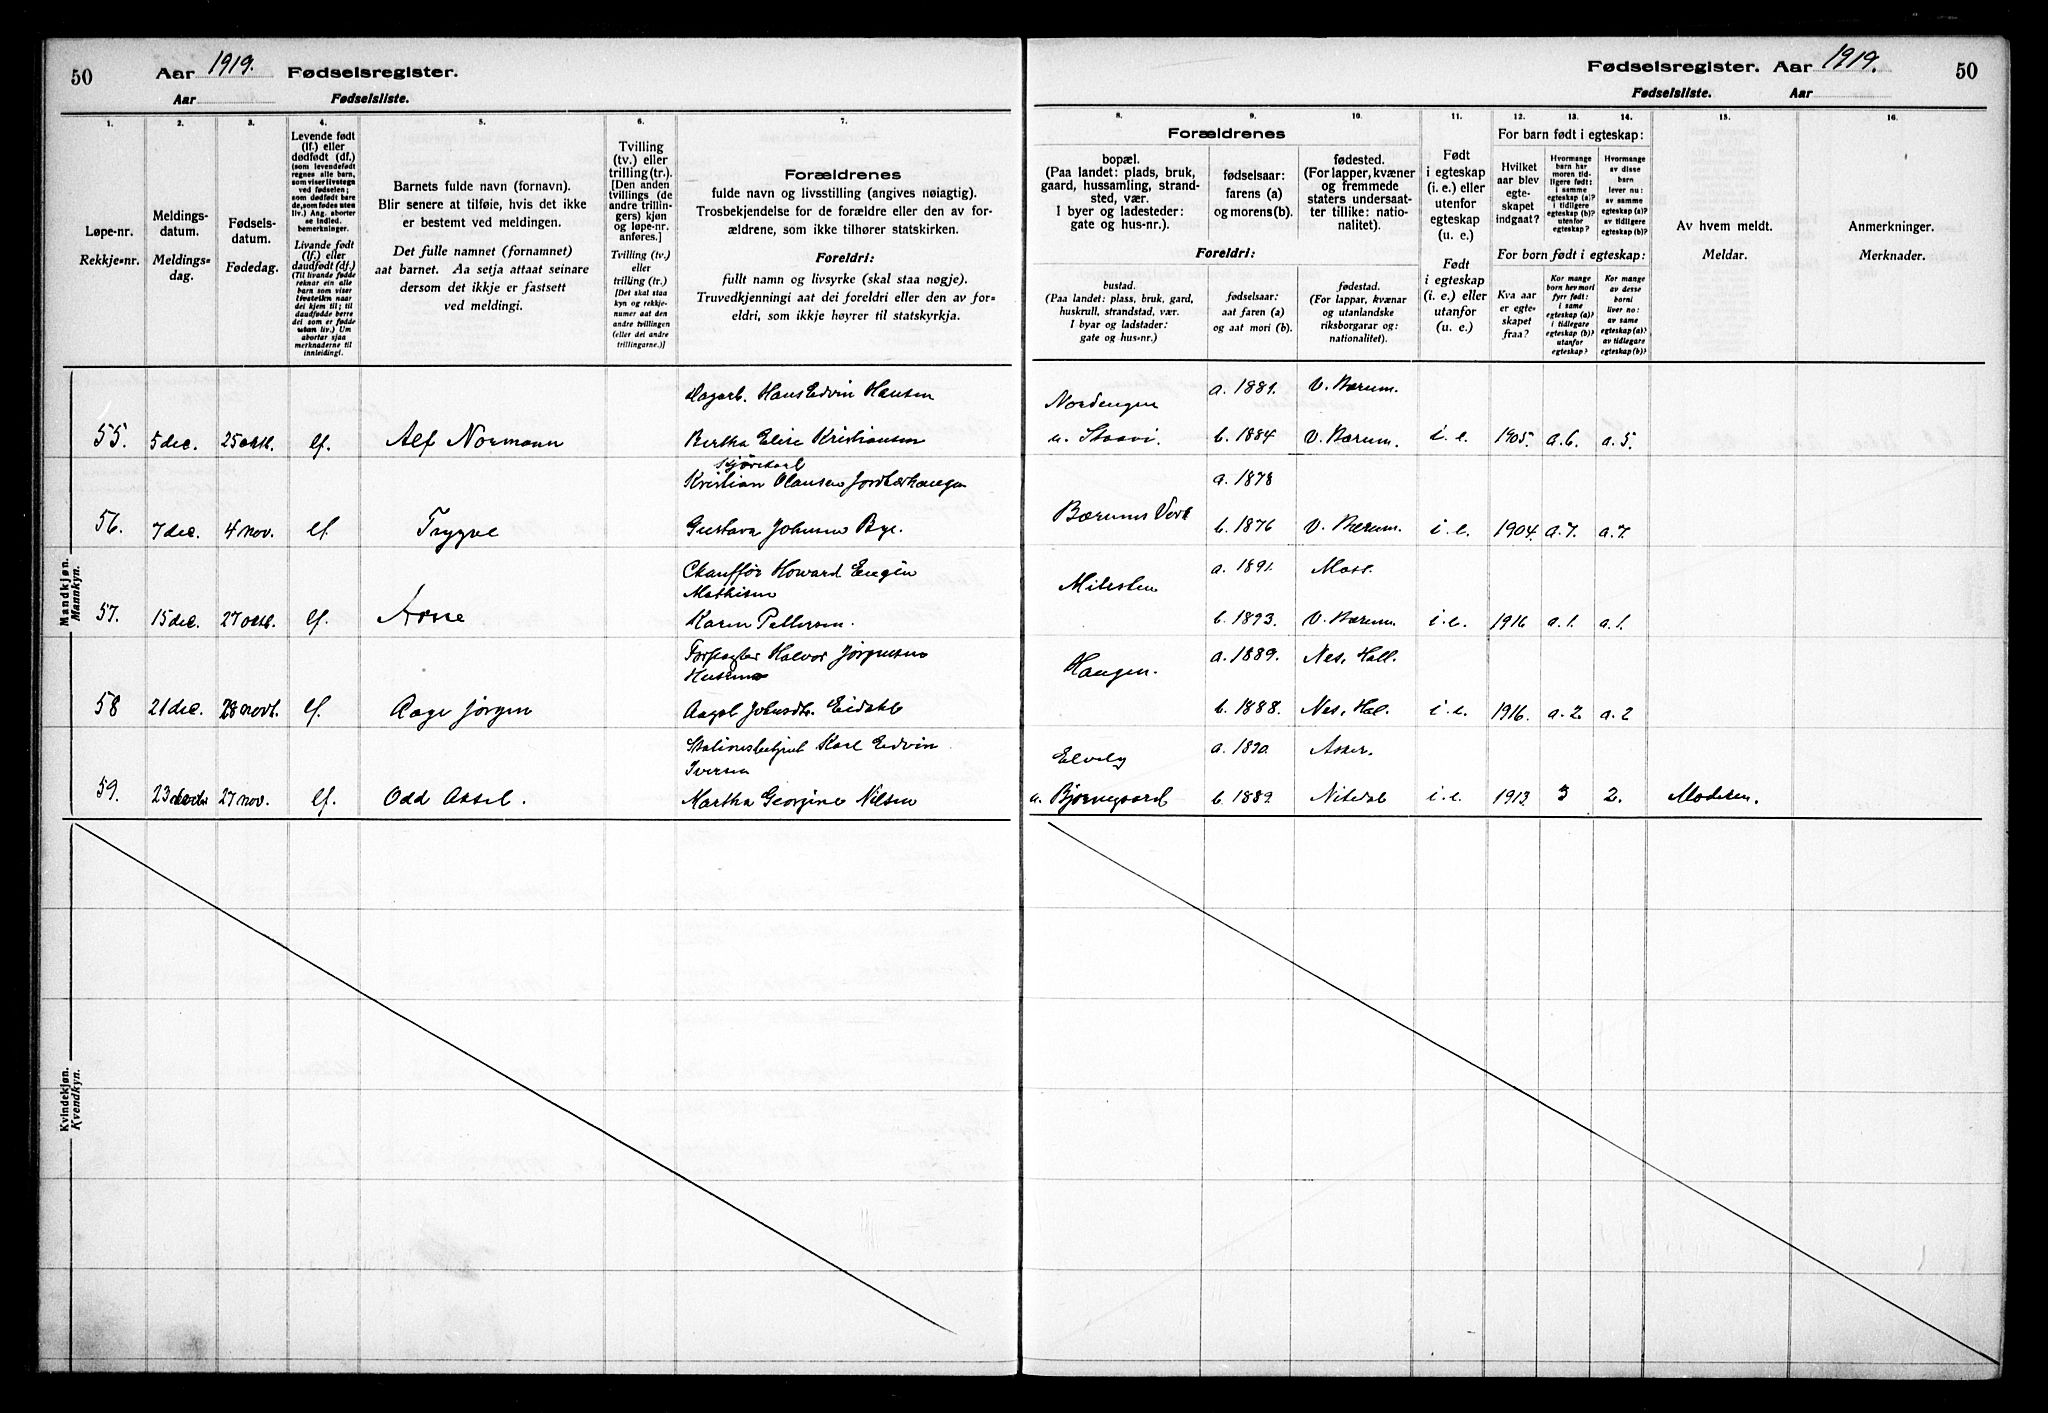 50
Aar 1919. Fødselsregister.
Aar Fødselsliste.
1.
2.
3.
4.
5.
6.
7.
Løpe-nr.
Rekkje-nr.
Meldings-
datum.
Meldings-
dag.
Fødsels-
datum.
Fødedag.
Levende født
(lf.) eller
dødfødt (df.)
(som levendefødt
regnes alle barn,
som viser livstegn
ved fødselen;
som dødfødt bare
de, som fødes uten
liv.) Ang. aborter
se indled.
bemerkninger.
Livande født
(lf.) eller
daudfødt (df.)
(Til livande fødde
reknar ein alle
born som viser
livsteikn naar
dei kjem til; til
daudfødde berre
dei som er fødde
utan liv.) Um
abortar sjaa
merknaderne til
innleidingi.
Barnets fulde navn (fornavn).
Blir senere at tilføie, hvis det ikke
er bestemt ved meldingen.
Det fulle namnet (fornamnet)
aat barnet. Aa setja attaat seinare
dersom det ikkje er fastsett
ved meldingi.
Tvilling
(tv.) eller
trilling (tr.).
[Den anden
tvillings (de
andre trillin-
gers) kjøn
og løpe-nr.
anføres.]
Tvilling (tv.)
eller
trilling (tr.)
[Det skal staa
kyn og rekkje-
numer aat den
andre tvillingen
(eller dei andre
trillingarne.)]
Forældrenes
fulde navn og livsstilling (angives nøiagtig).
Trosbekjendelse for de forældre eller den av for-
ældrene, som ikke tilhører statskirken.
Foreldri:
fullt namn og livsyrke (skal staa nøgje).
Truvedkjenningi aat dei foreldri eller den av for-
eldri, som ikkje høyrer til statskyrkja.
Mandkjøn.
Mannkyn.
Dagarb. Hans Edvin Hansen
55. 5 dec. 25 okt. lf. Alf Normann Bertha Elise Kristiansen
Kjørekarl
Kristian Olausen Jordbærhaugen
56. 7 dec. 4 nov. lf. Trygve Gustava Johnsen Bye.
Chauffør Howard Eugen
Mathisen
57. 15 dec. 27 okt. lf. Arne Karen Pettersen.
Halvor Jørgensen
58 21 dec. 28 novb. lf. Aage Jørgen Johnsdtr. Eidahl
Stationsbetjent Karl Edvin
Iversen
59. 23 27 nov. lf. Odd Aksel. Martha Georgine Nilsen
Kvindekjøn.
Kvendkyn.
Fødselsregister. Aar 1919. 50
Fødselsliste. Aar
8.
9.
10.
11.
12.
13.
14.
15.
16.
Forældrenes
bopæl.
(Paa landet: plads, bruk,
gaard, hussamling, strand-
sted, vær.
I byer og ladesteder:
gate og hus-nr.).
fødselsaar:
farens (a)
og morens (b).
fødested.
(For lapper, kvæner
og fremmede
staters undersaat-
ter tillike: natio-
nalitet).
Foreldri:
bustad.
(Paa landet: plass, bruk, gard,
huskrull, strandstad, vær.
I byar og ladstader:
gate og hus-nr.)
fødselsaar:
aat faren (a)
og aat mori (b).
fødestad.
(For lappar, kvænar
og utanlandske
riksborgarar og:
nationalitet).
Født
i egteskap
(i. e.) eller
utenfor
egteskap
(u. e.)
Født
i egteskap
(i. e.) eller
utanfor
(u. e.)
For barn født i egteskap:
Hvilket
aar blev
egte-
skapet
indgaat?
Hvormange
barn har
moren tid-
ligere født:
i samme
egteskap (a)?
i tidligere
egteskap (b)?
utenfor
egteskap?
Hvormange
av disse
barn
lever nu:
av samme
egteskap (a)?
av tidligere
egteskap (b)?
For born født i egteskap:
Kva aar
er egte-
skapet
fraa?
Kor mange
born hev mori
fyrr født:
i same
egteskap (a)?
i tidlegare
egteskap (b)?
utanfor
egteskap?
Kor mange
av desse
borni
liver no:
av same
egteskap (a)?
av tidlegare
egteskap (b)?
Av hvem meldt.
Meldar.
Anmerkninger.
Merknader.
Nordengen a. 1881. V. Bærum.
u. Staavi. b. 1884 V. Bærum. i. e. 1905. a. 6. a. 5.
a. 1878
Bærums Verk b. 1876 V. Bærum. i. e. 1904. a. 7. a. 7.
a. 1891. Moss.
Milesten b. 1893. V. Bærum. i. e. 1916 a. 1. a. 1.
a. 1889. Nes, Hall.
Haugen. b. 1888. Nes, Hal. i. e. 1916. a. 2. a. 2
Elvely a. 1890. Asker.
u. Bjørnegaard b. 1889. Nitedal i. e. 1913. 3 2. Moderen.